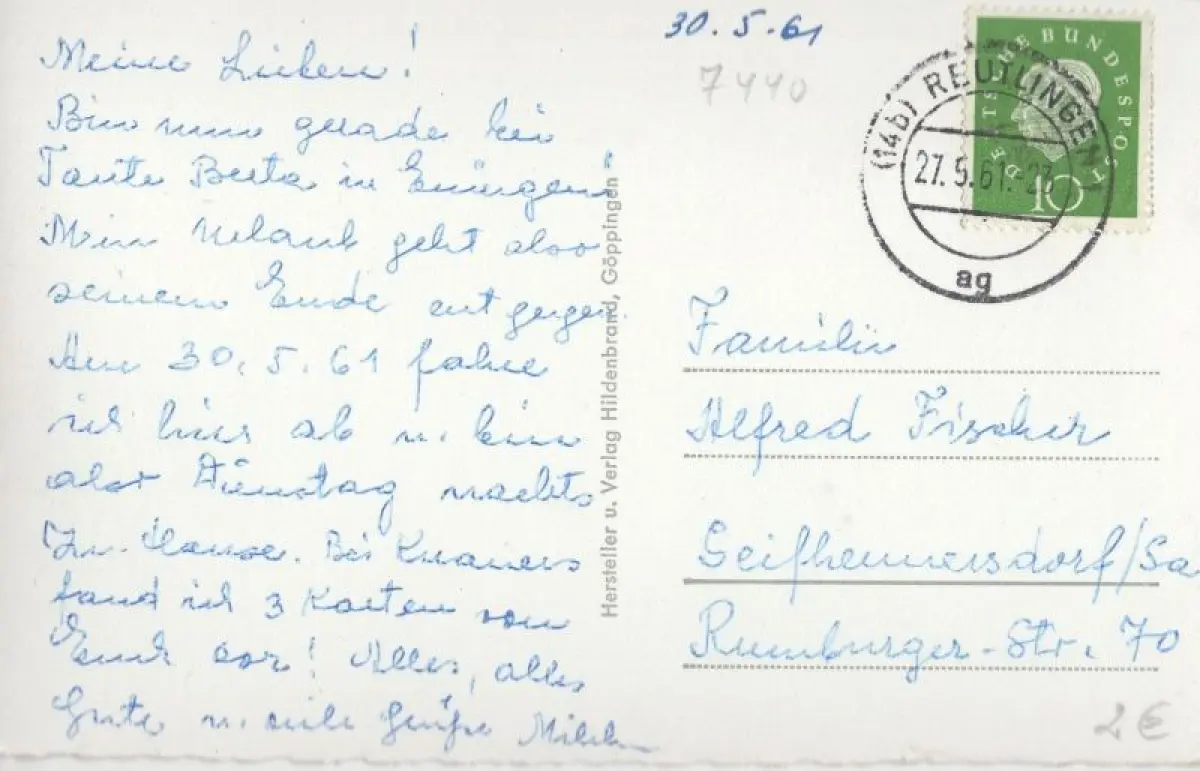 Meine Lieben!
Bin nun gerade bei
Tante Berta in Eningen!
Mein Urlaub geht also
seinem Ende entgegen.
Am 30.5.61 fahre
ich hier ab u. bin
also Dienstag nachts
zu Hause. Bei Kramers
fand ich 3 Karten von
Euch vor! Alles, alles
Gute u. viele Grüße
Hersteller u. Verlag Hildenbrand, Göppingen
30.5.61
7440
DEUTSCHE BUNDESPOST
10
(14b) REUTLINGEN
27.5.61.
ag
Familie
Alfred Fischer
Seifhennersdorf/Sa
Rumburger-Str. 70
2€